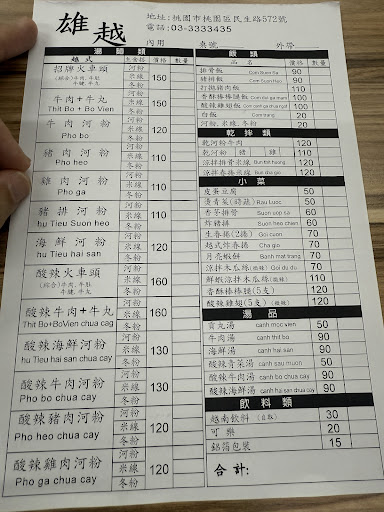 雄越
地址:桃園市桃園區民生路572號
電話:03-3333435
內用 桌號 外帶
湯麵類
越式 主食搭 價格 數量
招牌火車頭 河粉 米線 冬粉 150
(綜合)牛肉.牛肚
牛腱.牛丸
牛肉+牛丸 河粉 米線 冬粉 150
Thit Bo + Bo Vien
牛肉河粉 河粉 米線 冬粉 120
Pho bo
豬肉河粉 河粉 米線 冬粉 110
Pho heo
雞肉河粉 河粉 米線 冬粉 110
Pho ga
豬排河粉 河粉 米線 冬粉 110
hu Tieu Suon heo
海鮮河粉 河粉 米線 冬粉 120
hu Tieu hai san
酸辣火車頭 河粉 米線 冬粉 160
(綜合)牛肉.牛肚
牛腱.牛丸
酸辣牛肉+牛丸 河粉 米線 冬粉 160
Thit Bo+BoVien chua cag
酸辣海鮮河粉 河粉 米線 冬粉 130
hu Tieu hai san chua cay
酸辣牛肉河粉 河粉 米線 冬粉 130
Pho bo chua cay
酸辣豬肉河粉 河粉 米線 冬粉 120
Pho heo chua cay
酸辣雞肉河粉 河粉 米線 冬粉 120
Pho ga chua cay
飯類
品名 價格 數量
排骨飯 90
豬排飯 90
打拋豬肉飯 110
香酥棒棒腿飯 100
酸辣雞翅飯 100
白飯 Com trang 20
河粉.米線.冬粉 20
乾拌類
乾河粉牛肉 120
乾河粉 豬 雞 110
涼拌排骨米線 120
涼拌春捲米線 120
小菜
皮蛋豆腐 50
燙青菜(時蔬) Rau Luoc 50
香茅排骨 Suon sop ca 60
炸豬排 Suon heo chien 60
生春捲(2捲) Goi cuon 70
越式炸春捲 Cha gio 70
月亮蝦餅 Banh mat trang 70
涼拌木瓜絲(微辣) Goi du du 70
鮮蝦涼拌木瓜絲(微辣) 110
香酥棒棒腿(5支) 120
酸辣雞翅(5支) (微辣) 120
湯品
貢丸湯 canh moc vien 50
牛肉湯 canh thit bo 90
海鮮湯 canh hai san 90
酸辣青菜湯 canh sau muon 50
酸辣牛肉湯 canh bo chua cay 90
酸辣海鮮湯 canh hai san chua cay 90
飲料類
越南飲料 (自取) 30
可樂 20
鋁箔包裝 15
合計: